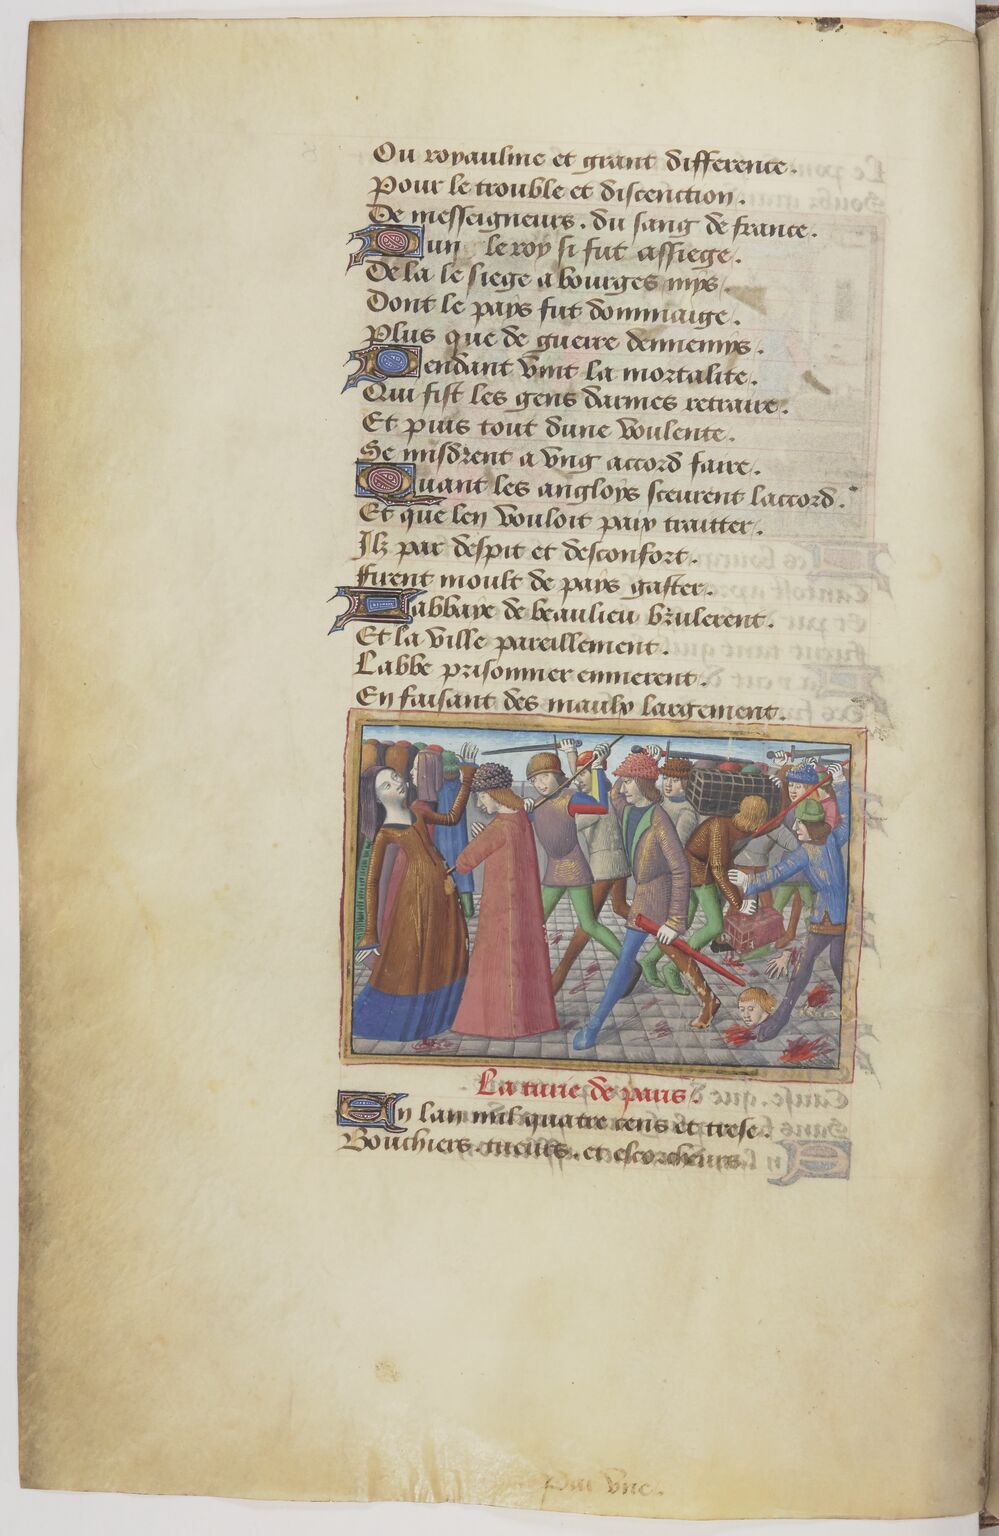 Ou royaulme et grant difference.
Pour le trouble et discenction.
De messeigneurs. du sang de france.
Dun le roy si fut assiege.
De la le siege a bourges mys.
Dont le pays fut dommaige.
Plus que de guerre dennemys.
Pendant vint la mortalite.
Qui fist les gens darmes retraire.
Et puis tout dune voulente.
Se misdrent a vng accord faire.
Quant les angloys sceurent laccord.
Et que len vouloit paix traitter.
Ilz par despit et desconfort.
firent moult de pays gaster.
Labbaye de beaulieu brulerent.
Et la ville pareillement.
Labbe prisonnier emmerent.
En faisant des maulx largement.
La turie de paris.
En lan mil quatre cens et trese.
Bouchiers. tueurs. et escorcheurs.
Par vne.